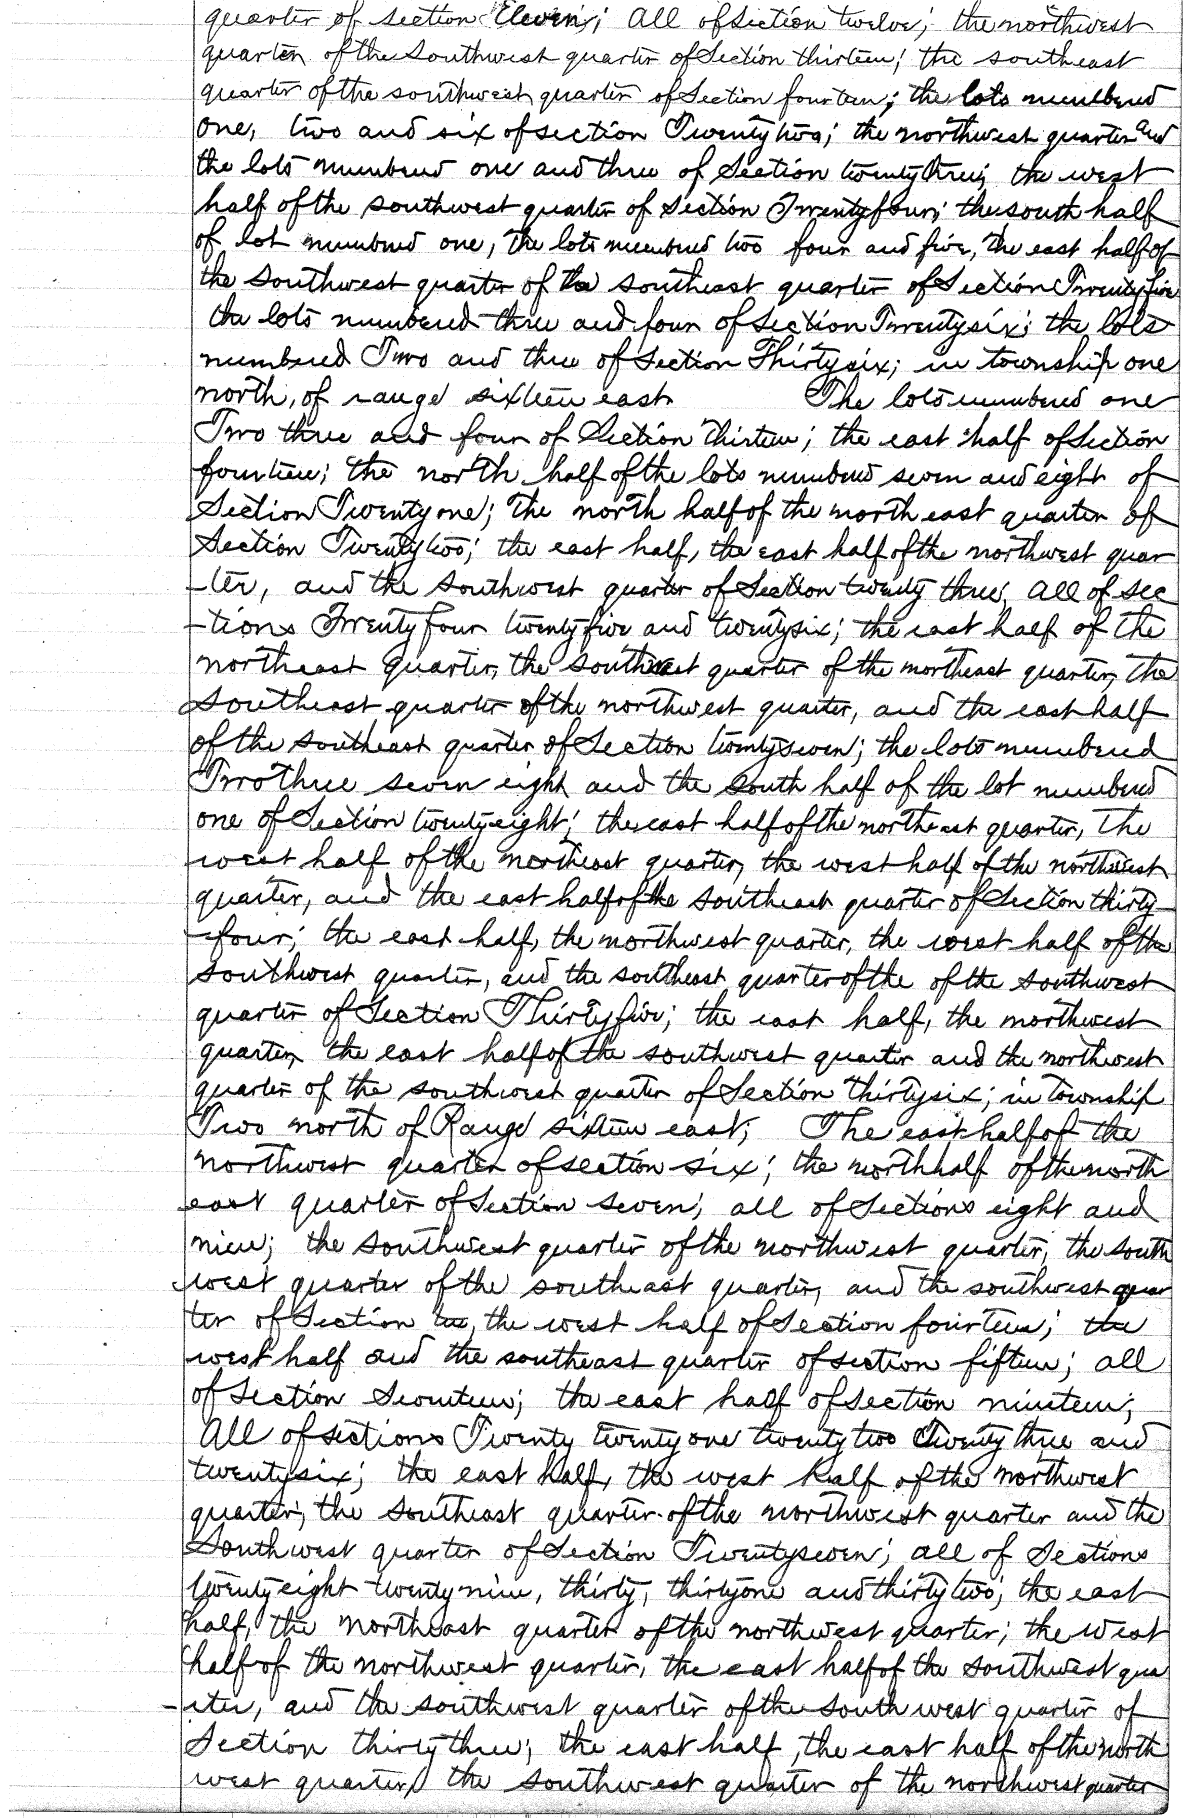 quarter of section Eleven; all of section twelve; the northwest
quarter of the southwest quarter of Section thirteen; the southeast
quarter of the southwest quarter of Section fourteen; the lots numbered
one, two and six of section Twenty two; the northwest quarter and
the lots numbered one and three of Section twenty three; the west
half of the southwest quarter of Section Twenty four; the south half
of lot numbered one, the lots numbered two four and five, the east half of
the southwest quarter of the southeast quarter of Section Twenty five
the lots numbered three and four of Section Twenty six; the lots
numbered Two and three of Section Thirty six; in township one
north, of range sixteen east The lots numbered one
Two three and four of Section Thirteen; the east half of Section
fourteen; the north half of the lots numbered seven and eight of
Section Twenty one; the north half of the north east quarter of
Section Twenty two; the east half, the east half of the northwest quar
-ter, and the southwest quarter of Section twenty three; all of sec
-tions Twenty four twenty five and twenty six; the east half of the
northeast quarter, the southwest quarter of the northeast quarter, the
southeast quarter of the northwest quarter, and the east half
of the southeast quarter of Section twenty seven; the lots numbered
Two three seven eight and the south half of the lot numbered
one of Section twenty eight; the east half of the northeast quarter, the
west half of the northeast quarter, the west half of the northwest
quarter, and the east half of the southeast quarter of Section thirty
-four; the east half, the northwest quarter, the west half of the
southwest quarter, and the southeast quarter of the of the southwest
quarter of Section Thirty five; the east half, the northwest
quarter, the east half of the southwest quarter and the northwest
quarter of the southwest quarter of Section thirty six; in township
Two north of Range sixteen east; The east half of the
northwest quarter of section six; the north half of the north
east quarter of Section seven; all of Sections eight and
nine; the southwest quarter of the northwest quarter, the south
west quarter of the southeast quarter, and the southwest quar
ter of Section ten, the west half of Section fourteen; the
west half and the southeast quarter of section fifteen; all
of Section Seventeen; the east half of section nineteen;
All of sections Twenty twenty one twenty two twenty three and
twenty six; the east half, the west half of the northwest
quarter, the southeast quarter of the northwest quarter and the
Southwest quarter of Section Twenty seven; all of Sections
twenty eight twenty nine, thirty, thirty one and thirty two; the east
half, the northeast quarter of the northwest quarter; the west
half of the northwest quarter, the east half of the southwest qua
-rter, and the southwest quarter of the south west quarter of
Section thirty three; the east half, the east half of the north
west quarter, the southwest quarter of the northwest quarter